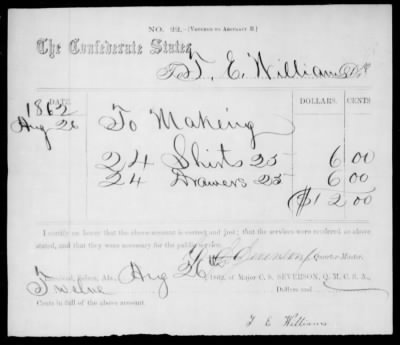 NO. 22.—(VOUCHER TO ABSTRACT B.)
The Confederate States,
To T. E. Williams Dr.
DATE. DOLLARS. CENTS
1862
Aug 26 To Making
24 Shirts 25 6 00
24 Drawers 25 6 00
$12 00
I certify on honor that the above account is correct and just; that the services were rendered as above
stated, and that they were necessary for the public service.
Quarter-Master.
Received, Selma, Ala., Aug 26 1862, of Major C. S. SEVERSON, Q. M. C. S. A.,
Twelve Dollars and
Cents in full of the above account.
T E Williams